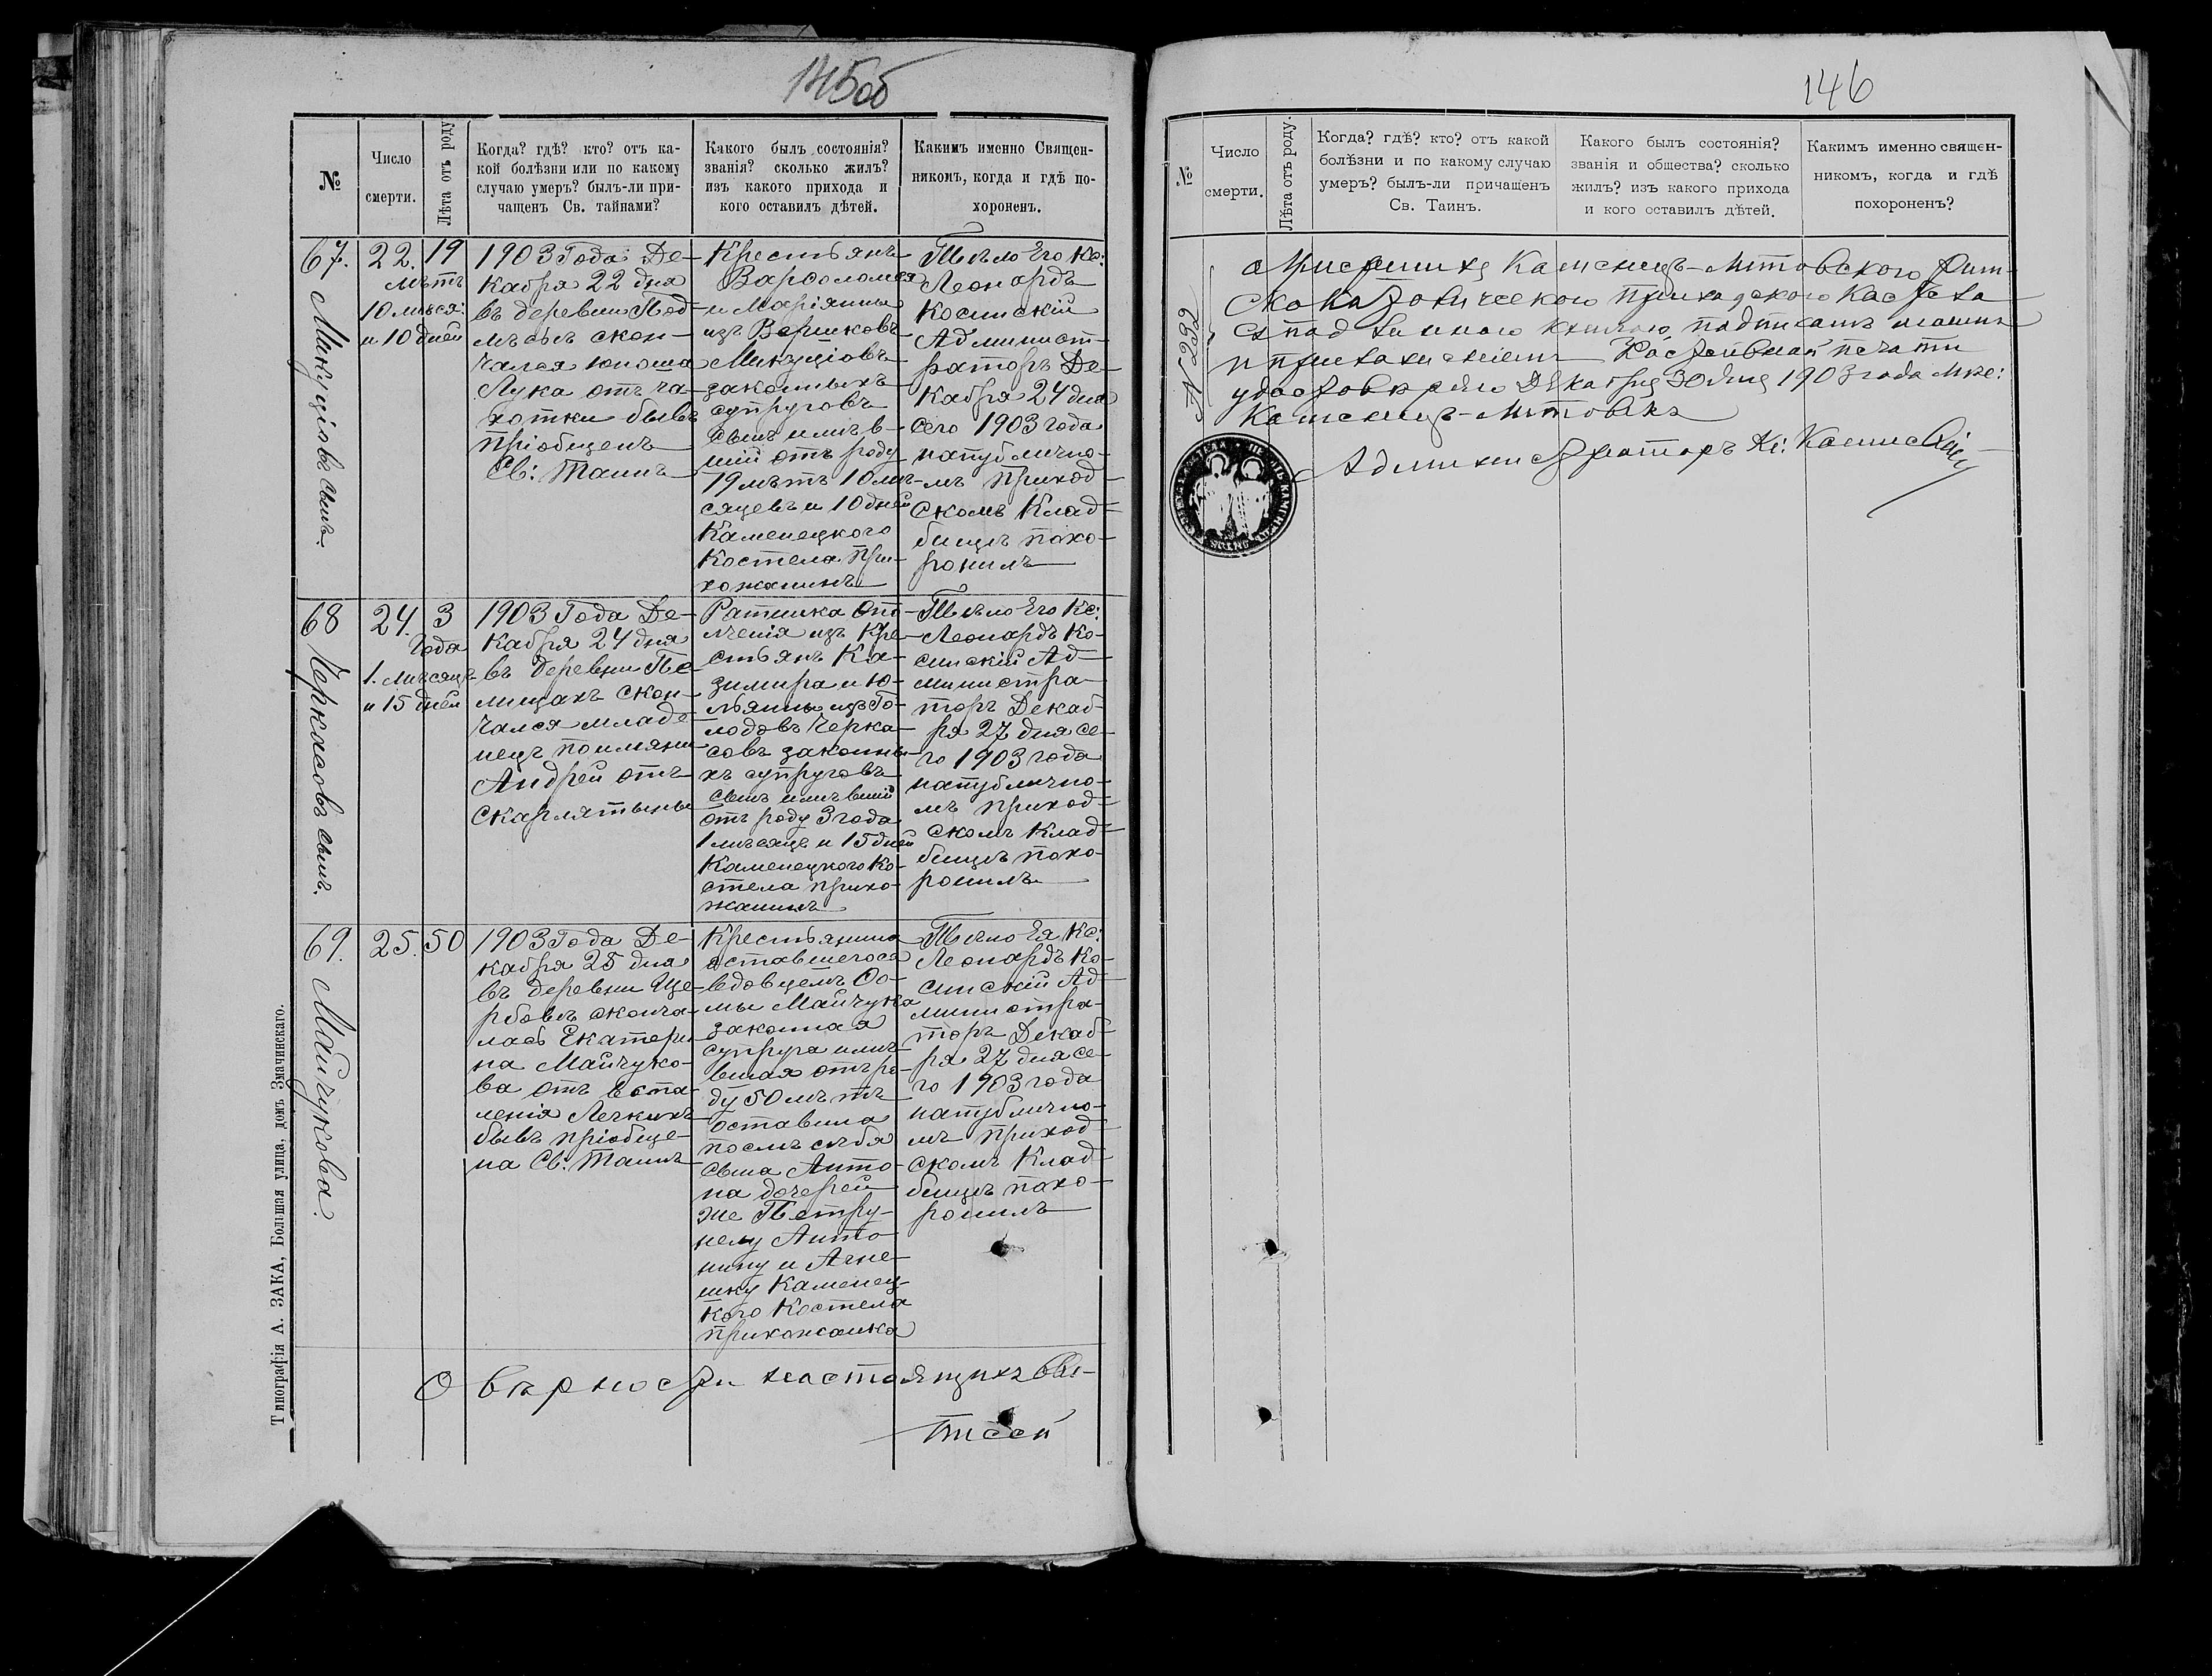 145об
№
Число
смерти.
Лѣта отъ роду
Когда? гдѣ? кто? отъ ка-
кой болѣзни или по какому
случаю умеръ? былъ-ли при-
чащенъ Св. тайнами?
Какого былъ состоянія?
званія? сколько жилъ?
изъ какого прихода и
кого оставилъ дѣтей.
Какимъ именно Священ-
никомъ, когда и гдѣ по-
хороненъ.
67.
Микуціовъ сынъ.
22.
19
лѣтъ
10 мѣсяц:
и 10 дней
1903 Года Де-
кабря 22 дня
въ деревни Под-
лѣсьѣ скон-
чался юноша
Лука отъ ча-
хотки бывъ
пріобщенъ
Св: Таинъ
Крестьянъ
Варѳоломея
и Маріянны
изъ
Микуціовъ
законныхъ
супруговъ
сынъ имѣв-
шій отъ роду
19 лѣтъ 10 мѣ-
сяцевъ и 10 дней
Каменецкого
Костела при-
хожанинъ
Тѣло Его Кс:
Леонардъ
Косинскій
Админист-
раторъ Де-
кабря 24 дня
сего 1903 года
напублично-
мъ приход-
скомъ Клад-
бищѣ похо-
ронилъ
68
Черкасовъ сынъ.
24.
3
Года
1. мѣсяцъ
и 15 дней
1903 Года Де-
кабря 24 дня
въ деревни Пе-
лищахъ скон-
чался младе-
нецъ поимяни
Андрей отъ
скарлятыны
Ратника опо-
лченія изъ Кре-
стьянъ Ка-
зимира и Ю-
льянны изъ Го-
лодовъ Черка-
совъ законны-
хъ супруговъ
сынъ имѣвшій
отъ роду 3 года
1 мѣсяцъ и 15 дней
Каменецкого Ко-
стела прихо-
жанинъ
Тѣло Его Кс:
Леонардъ Ко-
синскій Ад-
министра-
торъ Декаб-
ря 27 дня се-
го 1903 года
напублично-
мъ приход-
скомъ Клад-
бищѣ похо-
ронилъ
69.
Майчукова.
25.
50
1903 Года Де-
кабря 25 дня
въ деревни Ще-
рбовѣ сконча-
лась Екатери-
на Майчуко-
ва отъ воспа-
ленія Легкихъ
бывъ пріобще-
на Св: Таинъ
Крестьянина
оставшегося
вдовцемъ Ѳо-
мы Майчука
законная
супруга имѣ-
вшая отъ ро-
ду 50 лѣтъ
оставила
послѣ себя
сына Анто-
на дочерей
же Петру-
нелу Анто-
нину и Агне-
шку Каменец-
кого Костела
прихожанка
Тѣло Ея Кс:
Леонардъ Ко-
синскій Ад-
министра-
торъ Декаб-
ря 27 дня се-
го 1903 года
напублично-
мъ приход-
скомъ Клад-
бищѣ похо-
ронилъ
О вѣрности настоящихъ вы-
писей
Типографія А. ЗАКА, Большая улица, домъ Значинскаго.
146
№
Число
смерти.
Лѣта отъ роду.
Когда? гдѣ? кто? отъ какой
болѣзни и по какому случаю
умеръ? былъ-ли причащенъ
Св. Таинъ.
Какого былъ состоянія?
званія и общества? сколько
жилъ? изъ какого прихода
и кого оставилъ дѣтей.
Какимъ именно священ-
никомъ, когда и гдѣ
похороненъ?
N 232
Каменецъ-Литовского Рим-
ско Католического приходского Костела
съ подлинною книгою подписомъ моимъ
и приложеніемъ Костельной печати
удостовѣряю Декабря 30 дня 1903 года Мѣс:
Каменецъ-Литовскъ
Администраторъ Кс: Косинскій